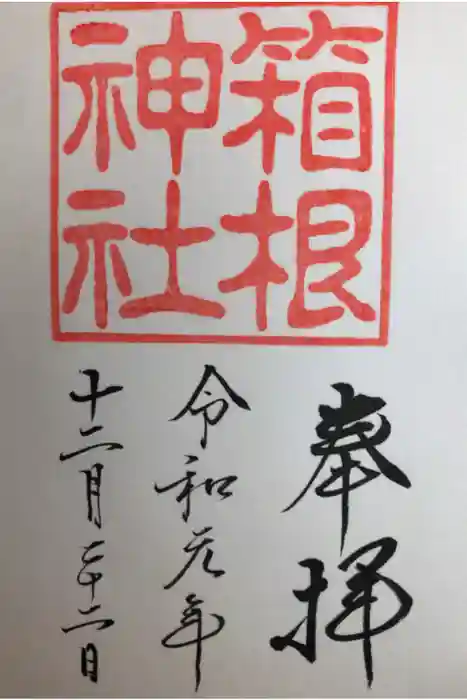 箱根
神社
奉拝
令和元年
十二月二十二日